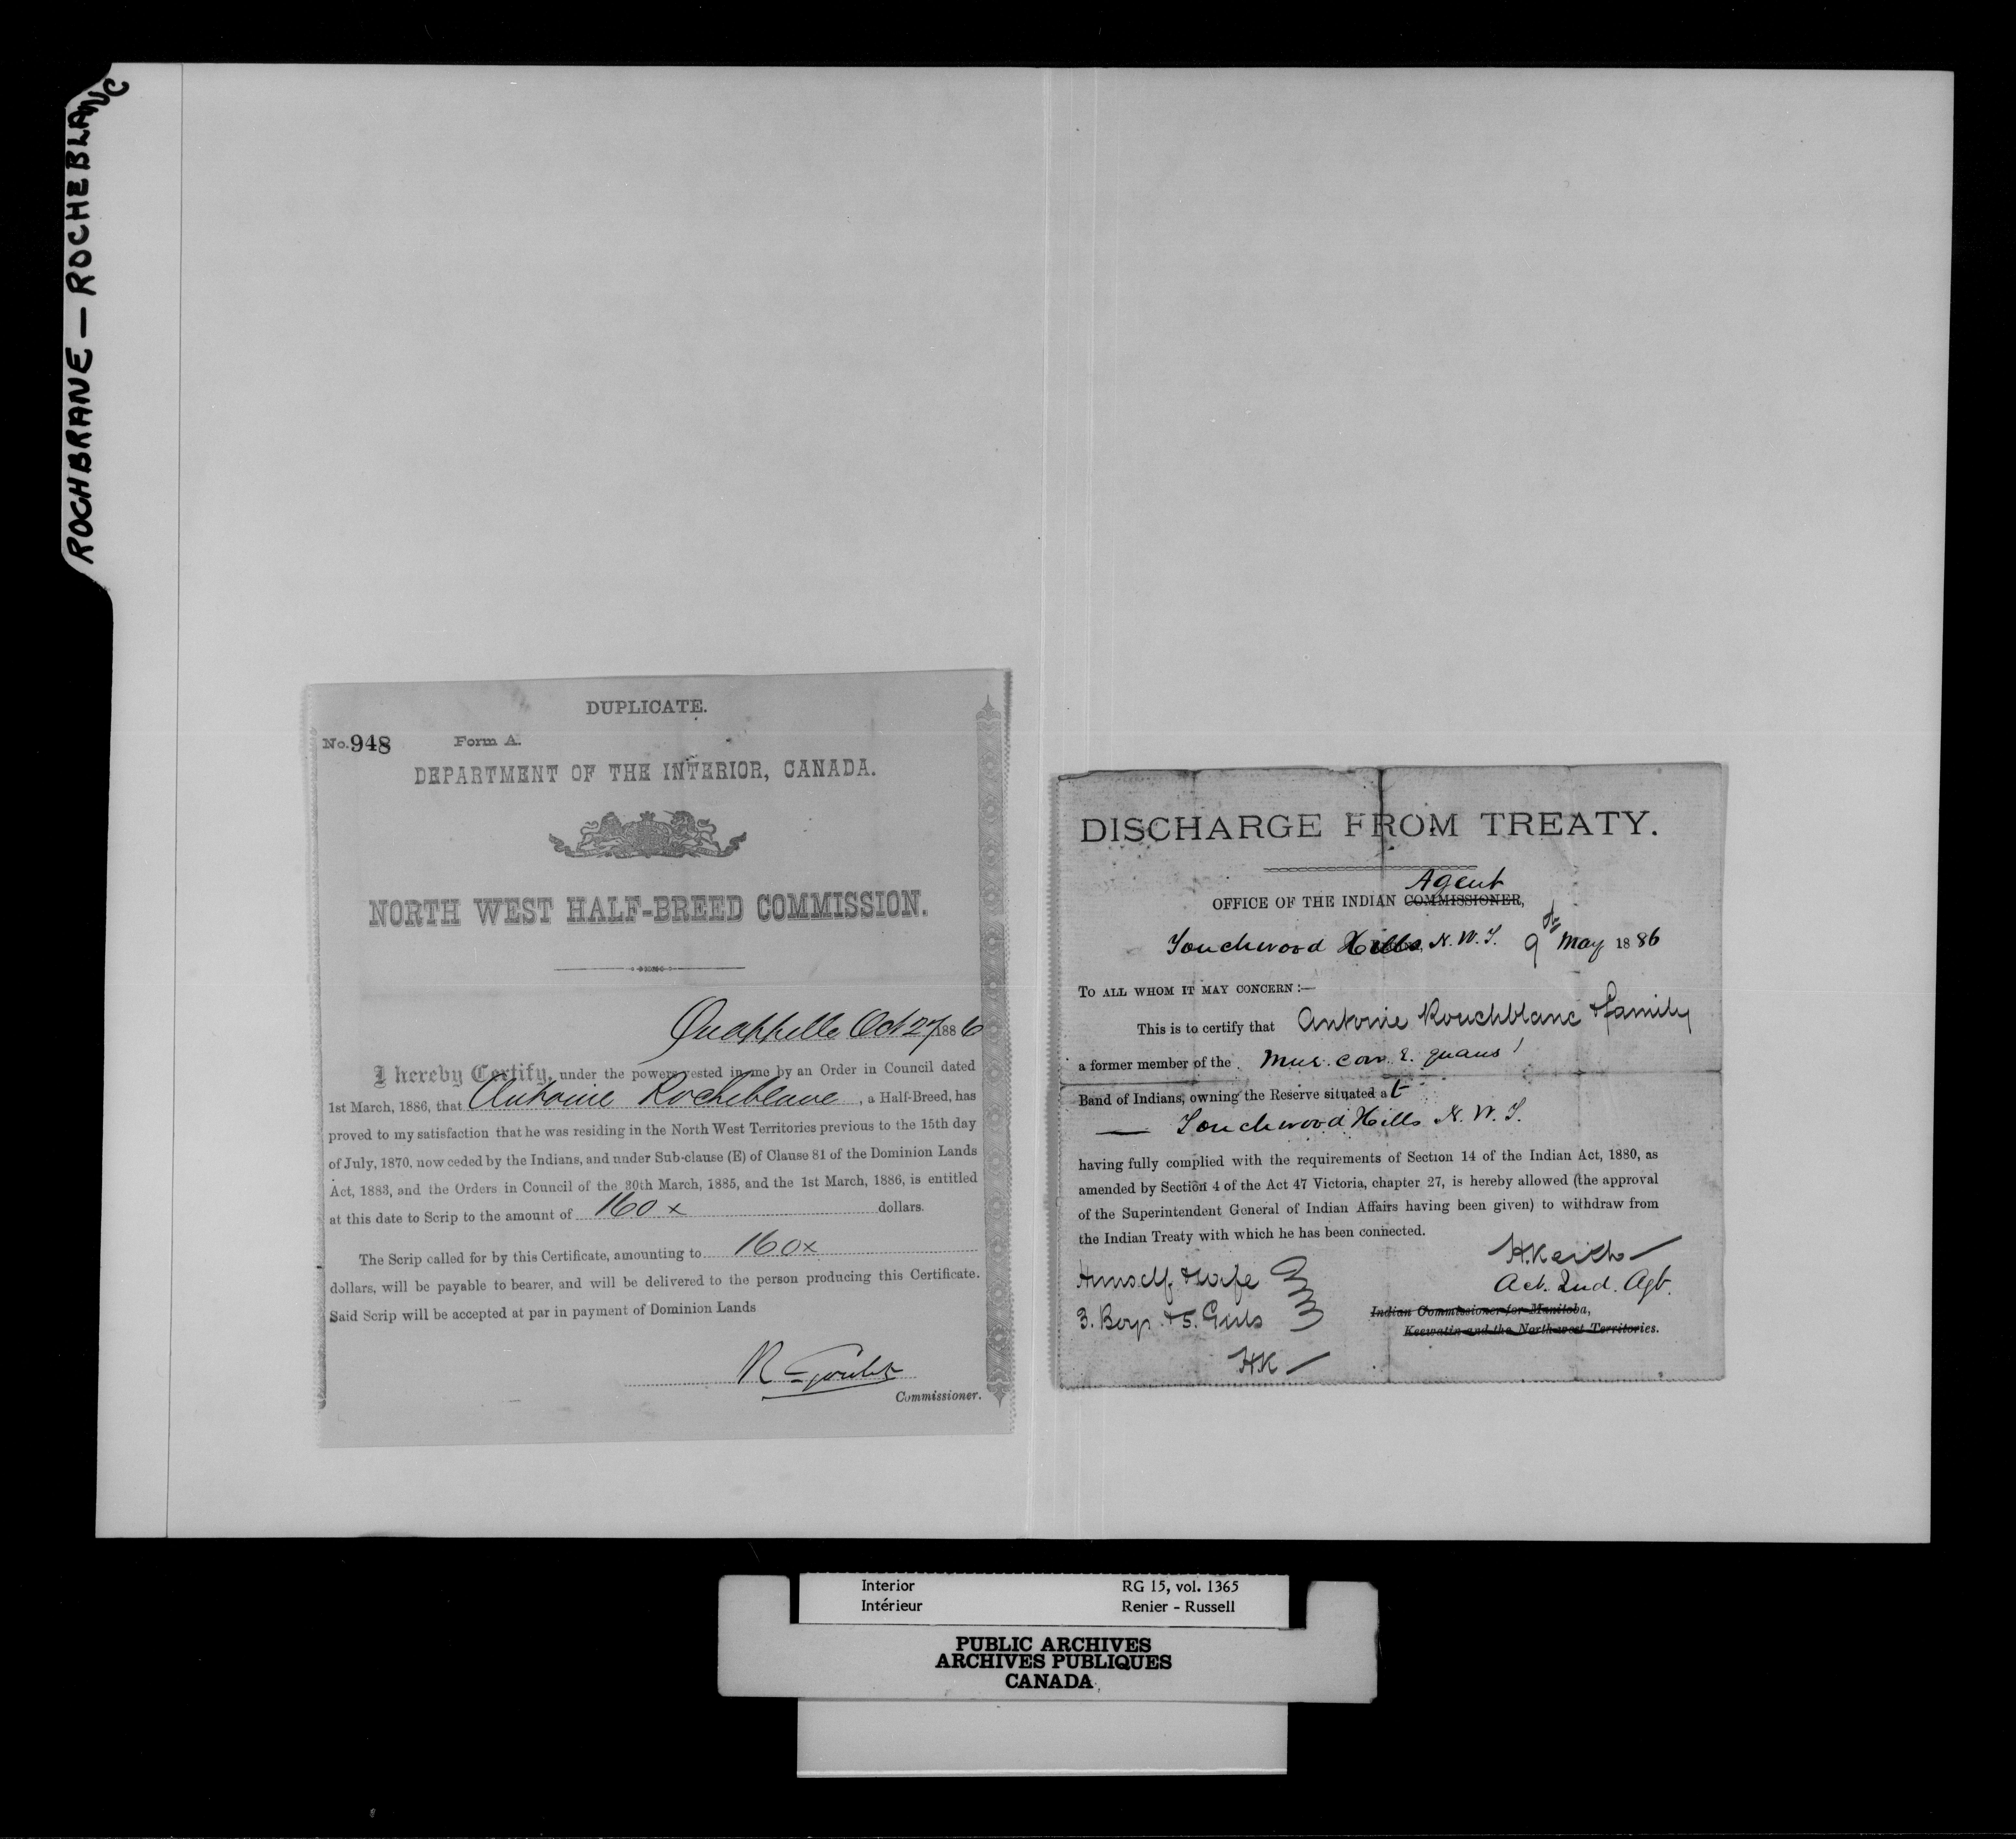 ROCHBRANE — ROCHEBLANC
DUPLICATE.
No. 948 Form A.
DEPARTMENT OF THE INTERIOR, CANADA.
NORTH WEST HALF-BREED COMMISSION.
Quappelle Oct 27 1886
I hereby Certify, under the powers vested in me by an Order in Council dated
1st March, 1886, that Antoine Rocheblave, a Half-Breed, has
proved to my satisfaction that he was residing in the North West Territories previous to the 15th day
of July, 1870, now ceded by the Indians, and under Sub-clause (E) of Clause 81 of the Dominion Lands
Act, 1883, and the Orders in Council of the 30th March, 1885, and the 1st March, 1886, is entitled
at this date to Scrip to the amount of 160 x dollars.
The Scrip called for by this Certificate, amounting to 160 x
dollars, will be payable to bearer, and will be delivered to the person producing this Certificate.
Said Scrip will be accepted at par in payment of Dominion Lands
R Goulet
Commissioner.
DISCHARGE FROM TREATY.
Agent
OFFICE OF THE INDIAN COMMISSIONER,
Touchwood Hills, N.W.T. 9th May 1886
TO ALL WHOM IT MAY CONCERN :—
This is to certify that Antoine Rouchblanc & family
a former member of the Mus. cow. E. quaus'
Band of Indians, owning the Reserve situated at
— Touchwood Hills N.W.T.
having fully complied with the requirements of Section 14 of the Indian Act, 1880, as
amended by Section 4 of the Act 47 Victoria, chapter 27, is hereby allowed (the approval
of the Superintendent General of Indian Affairs having been given) to withdraw from
the Indian Treaty with which he has been connected.
H. Keith —
Act. Ind. Agt.
Himself & wife
3. Boys & 5. Girls
Indian Commissioner for Manitoba,
Keewatin and the North-west Territories.
HK —
Interior RG 15, vol. 1365
Intérieur Renier - Russell
PUBLIC ARCHIVES
ARCHIVES PUBLIQUES
CANADA